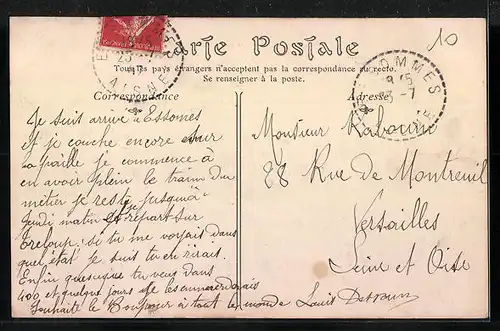 Carte Postale
Tous les pays étrangers n'acceptent pas la correspondance au recto.
Se renseigner à la poste.
Correspondance
Adresse
10
AISNE
OMMES
23-7
Je suit arrivé a Essomes
et je couche encore sur
la paille je commence à
en avoir plein le train du
métier je reste jusqu'à
Jeudi matin et je repart sur
Treloup. si tu me voyais dans
quel état je suit tu en rirais.
Enfin quesque tu veux dans
400 et quelque jours je les emmerderais
Souhaite le Bonjour à tout le monde Louis
Monsieur
88 Rue de Montreuil
Versailles
Seine et Oise